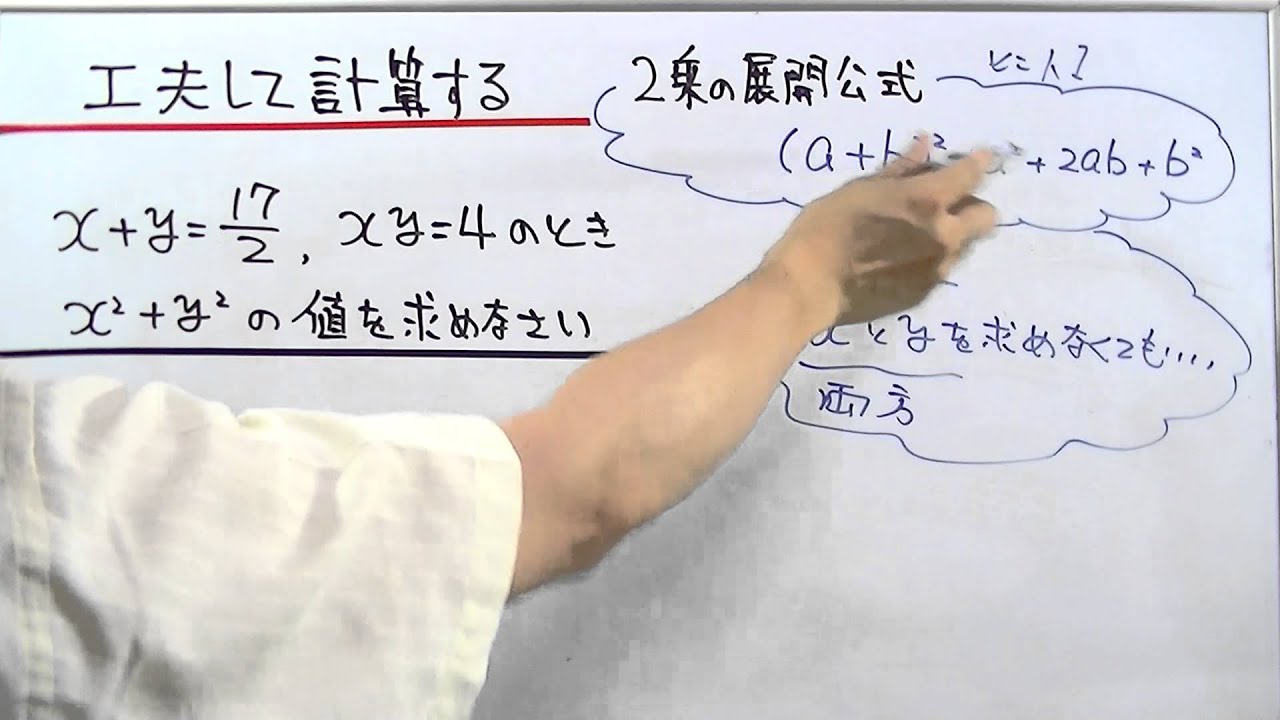 工夫して計算する
x+y=17/2, xy=4のとき
x²+y²の値を求めなさい
ヒント!
2乗の展開公式
(a+b)²=a²+2ab+b²
xとyを求めなくても....
両方